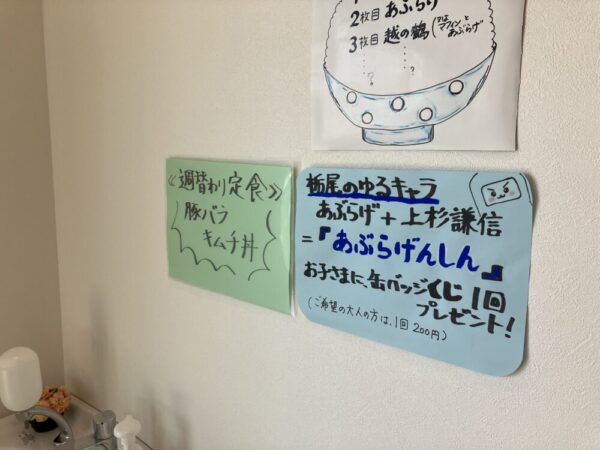 2枚目 あぶらげ
3枚目 越の鶴(マフィンとあぶらげ
・・・・?
・・・・?
《週替わり定食》
豚バラ
キムチ丼
栃尾のゆるキャラ
あぶらげ+上杉謙信
=『あぶらげんしん』
お子さまに、缶バッジくじ1回
プレゼント!
(ご希望の大人の方は、1回200円)